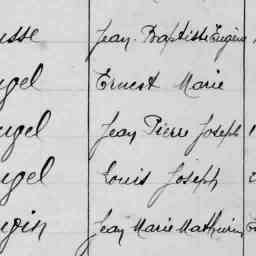 usse Jean-Baptiste Eugène
ugel Ernest Marie
ugel Jean Pierre Joseph
ugel Louis Joseph
Jean Marie Mathurin